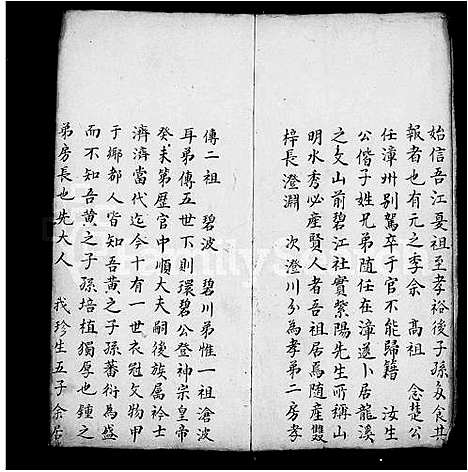 始信吾江夏祖至孝裕後子孫多食其
報者也有元之季余 高祖 念楚公
任漳州別駕卒于官不能歸籍 汝生
公偕子姓兄弟隨任在漳遂卜居龍溪
之文山前碧江社實紫陽先生所稱山
明水秀必產賢人者吾祖居焉隨產雙
梓長澄淵 次澄川分為孝弟二房孝
傳二祖 碧波 碧川弟惟一祖滄波
耳弟傳五世下則環碧公登神宗皇帝
癸未第歷官中順大夫嗣後族属衿士
濟濟當代迄今十有一世衣冠文物甲
于鄉都人皆知吾黃之子孫蕃衍為盛
而不知吾黃之子孫培植獨厚也鍾之
弟房長也先大人 我珍生五子余居